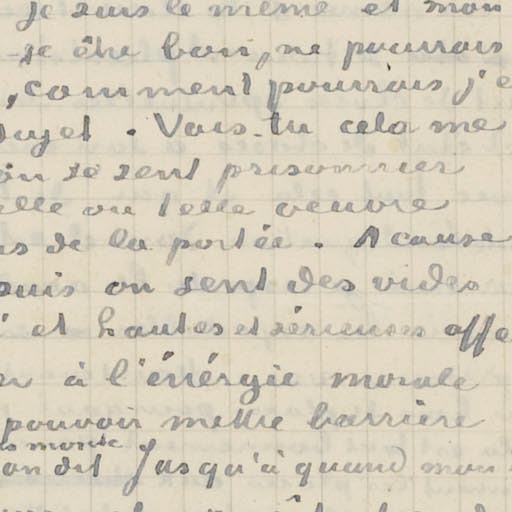 je suis le même et mon
-je être bon, ne pourrais
, comment pourrais j'e
sujet. Vois-tu cela me
on se sent prisonnier
elle ou telle oeuvre
as de la portée. A cause
puis on sent des vides
é et hautes et sérieuses affe
à l'énérgie morale
pouvoir mettre barrière
on dit Jusqu'à quand mon